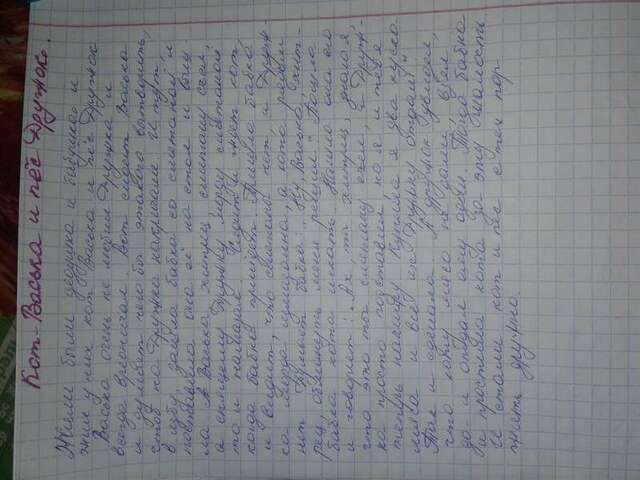 Кот-Васька и пёс Дружок.
Жили были дедушка и бабушка и
жил у них кот Васька и пёс Дружок
Васька очень не любил Дружка и
всегда вредничал. Вот сидит Васька
и думает чего бы этакого вытворить,
чтоб на Дружка накричали. И тут,
в избу, зашла бабка со сметаной и
поставила она её на стол и вы
ла. А Васька, хитрец, сметану съел,
а спящему Дружку морду сметаной
то и намазал. Сидит и ждёт кот,
когда бабка прийдёт. Пришла бабка
и видит, что сметаны нет, и Друж-
ка морда измазана, а кота рядом
нет. Думает бабка: "Ну, Васька, хит-
рец, обмануть меня решил." Пошла
бабка кота искать. Нашла она его
и говорит: "Ах, ты хитрец, знаю я,
что это ты сметану съел, а Друж-
ка просто подставил, но я и тебя
теперь накажу. Купила я два куска
мяса и все их Дружку отдам!"
Так и сделала. А Дружок увидел,
что коту мясо не дали, взял,
да и отдал ему один. Тогда бабка
и простила кота за эту шалость.
И стали кот и пёс с тех пор
жить дружно.